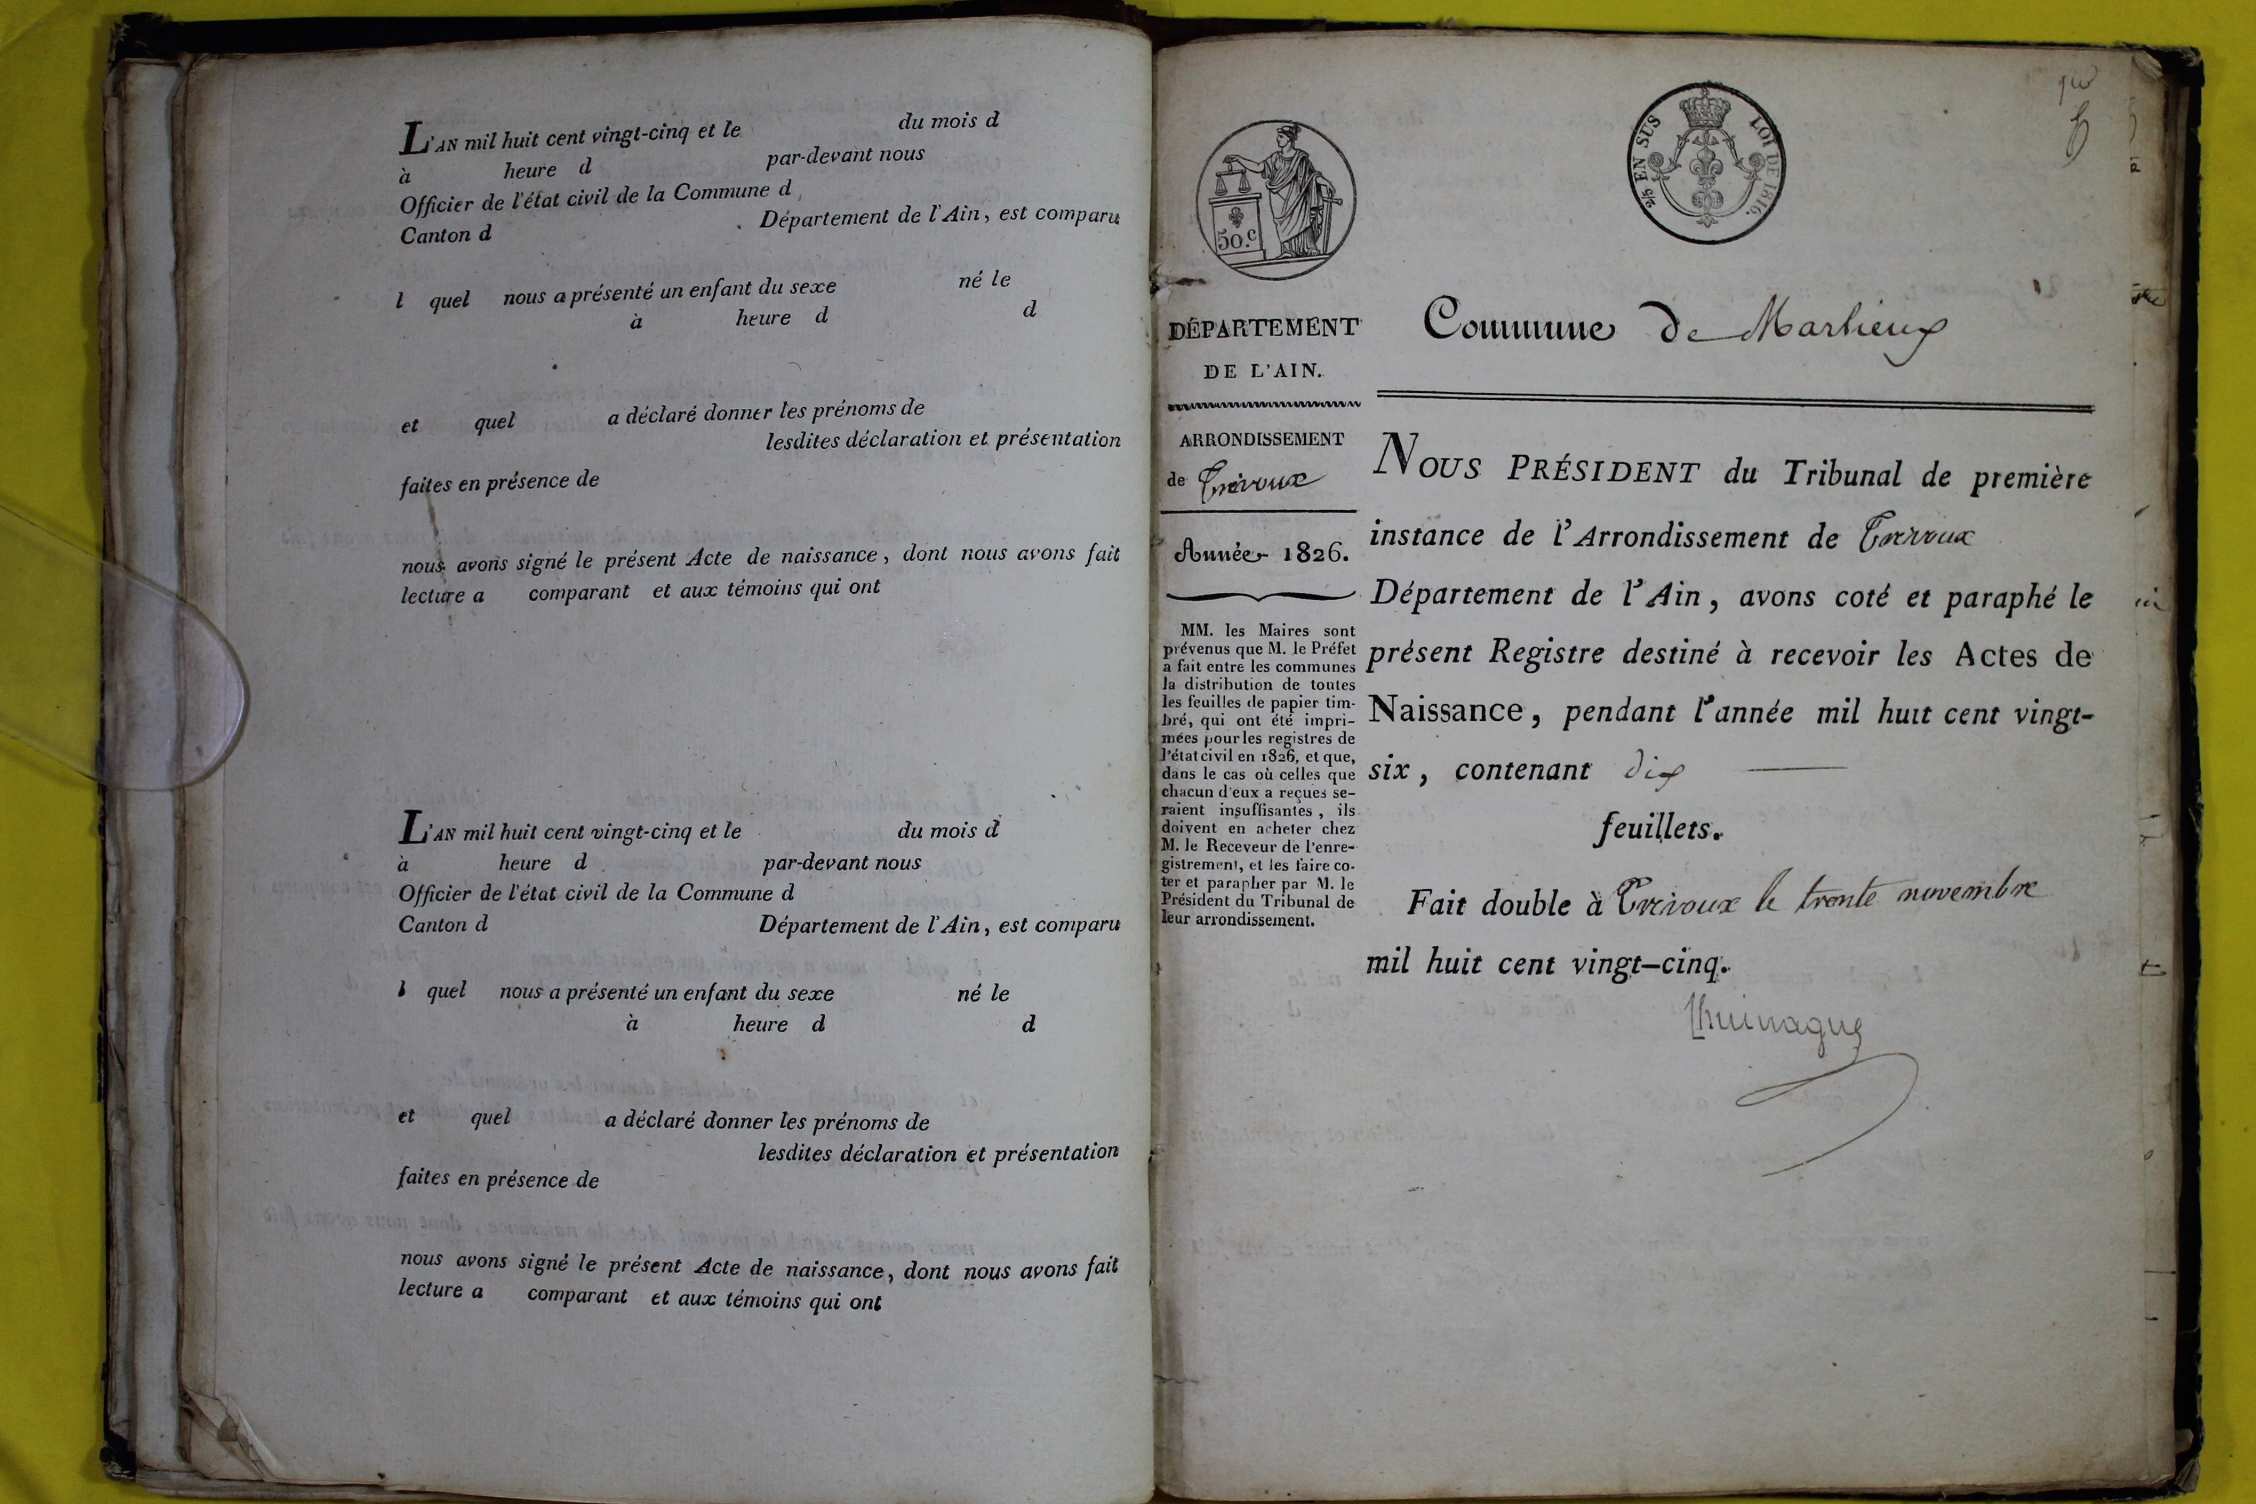 L'AN mil huit cent vingt-cinq et le du mois d
à heure d par-devant nous
Officier de l'état civil de la Commune d
Canton d Département de l'Ain, est comparu
l quel nous a présenté un enfant du sexe né le
à heure d d
et quel a déclaré donner les prénoms de
lesdites déclaration et présentation
faites en présence de
nous avons signé le présent Acte de naissance, dont nous avons fait
lecture a comparant et aux témoins qui ont
L'AN mil huit cent vingt-cinq et le du mois d
à heure d par-devant nous
Officier de l'état civil de la Commune d
Canton d Département de l'Ain, est comparu
l quel nous a présenté un enfant du sexe né le
à heure d d
et quel a déclaré donner les prénoms de
lesdites déclaration et présentation
faites en présence de
nous avons signé le présent Acte de naissance, dont nous avons fait
lecture a comparant et aux témoins qui ont
50.c
2/5 EN SUS LOI DE 1816.
DÉPARTEMENT
DE L'AIN.
ARRONDISSEMENT
de Trévoux
Année 1826.
MM. les Maires sont
prévenus que M. le Préfet
a fait entre les communes
la distribution de toutes
les feuilles de papier tim-
bré, qui ont été impri-
mées pour les registres de
l'état civil en 1826, et que,
dans le cas où celles que
chacun d'eux a reçues se-
raient insuffisantes, ils
doivent en acheter chez
M. le Receveur de l'enre-
gistrement, et les faire co-
ter et parapher par M. le
Président du Tribunal de
leur arrondissement.
Commune de Marlieux
NOUS PRÉSIDENT du Tribunal de première
instance de l'Arrondissement de Trévoux
Département de l'Ain, avons coté et paraphé le
présent Registre destiné à recevoir les Actes de
Naissance, pendant l'année mil huit cent vingt-
six, contenant dix
feuillets.
Fait double à Trévoux le trente novembre
mil huit cent vingt-cinq.